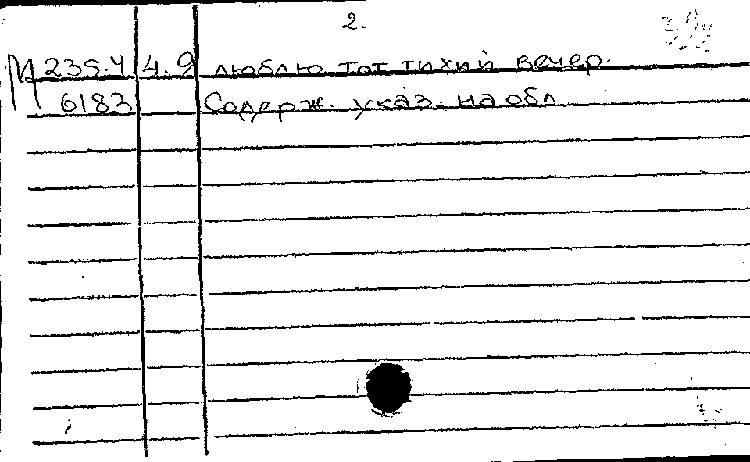 2.
М 235.4 4.9 люблю тот тихий вечер.
6183 Содерж. указ. на обл